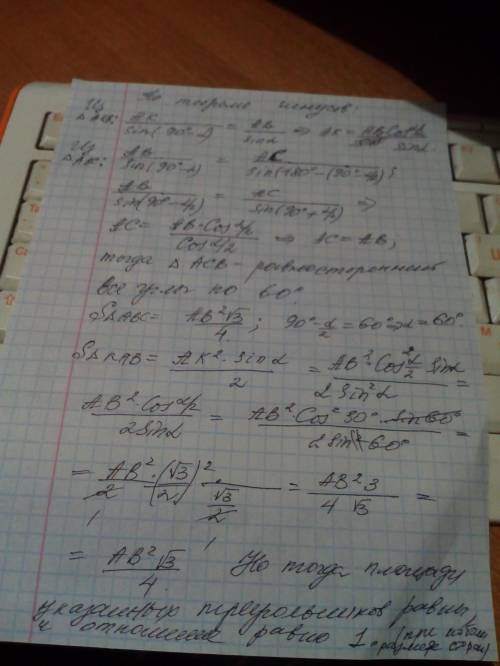 По теореме синусов:
Из ΔАКВ: AK/sin(90°-α/2) = AB/sinα ⇒ AK = AB·Cosα/2 / sinα.
Из ΔABC: AB/sin(90°-α/2) = AC/sin(180°-(90°-α/2));
AB/sin(90°-α/2) = AC/sin(90°+α/2) ⇒
AC = AB·Cosα/2 / Cosα/2 ⇒ AC = AB,
тогда Δ ACB - равносторонний
все углы по 60°
SΔABC = AB²√3/4 ; 90°-α/2 = 60° ⇒ α = 60°.
SΔKAB = AK²·sinα/2 = AB²·Cos²α/2 sinα / 2Sin²α =
AB²·Cosα/2 / 2Sinα = AB²·Cos²30°·sin60° / 2sin²60° =
= AB²/2 · (√3/2)² · / √3/2 = AB²3 / 4√3 =
= AB²√3/4 Но тогда площади
указанных треугольников равны
и отношение равно 1. (при
размере сторон)